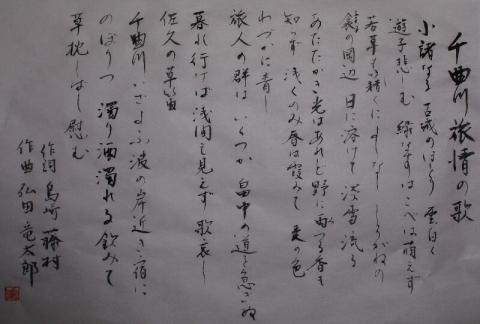 千曲川旅情の歌
小諸なる古城のほとり 雲白く
遊子悲しむ 緑なすはこべは萌えず
若草も藉くによしなし しろがねの
衾の岡辺 日に溶けて 淡雪流る
あたたかき光はあれど 野に満つる香も
知らず 浅くのみ春は霞みて 麦の色
わづかに青し
旅人の群は いくつか 畠中の道を急ぎぬ
暮れ行けば浅間も見えず 歌哀し
佐久の草笛
千曲川 いざよふ波の 岸近き宿に
のぼりつ 濁り酒濁れる飲みて
草枕しばし慰む
作詞 島崎藤村
作曲 弘田竜太郎